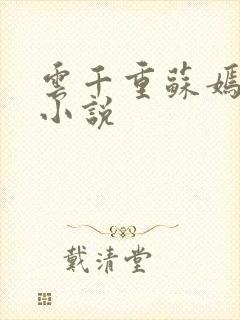 雲千重蘇嫣
小說
戴清堂